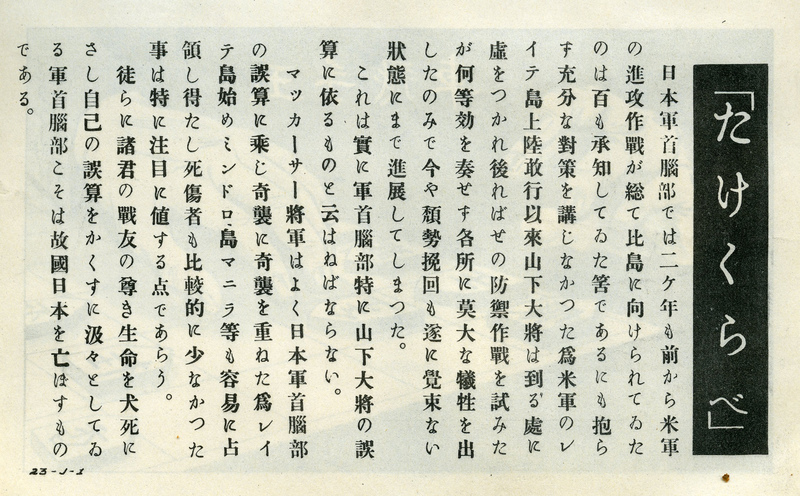 「たけくらべ」
日本軍首腦部では二ケ年も前から米軍
の進攻作戰が総て比島に向けられてゐた
のは百も承知してゐた筈であるにも抱ら
す充分な對策を講じなかつた爲米軍のレ
イテ島上陸敢行以來山下大將は到る處に
虛をつかれ後ればせの防禦作戰を試みた
が何等効を奏せす各所に莫大な犠牲を出
したのみで今や頽勢挽回も遂に覺束ない
狀態にまで進展してしまつた。
これは實に軍首腦部特に山下大將の誤
算に依るものと云はねばならない。
マッカーサー將軍はよく日本軍首腦部
の誤算に乘じ奇襲に奇襲を重ねた爲レイ
テ島始めミンドロ島マニラ等も容易に占
領し得たし死傷者も比較的に少なかつた
事は特に注目に値する点であらう。
徒らに諸君の戰友の尊き生命を犬死に
さし自己の誤算をかくすに汲々としてゐ
る軍首腦部こそは故國日本を亡ぼすもの
である。
23-J-1